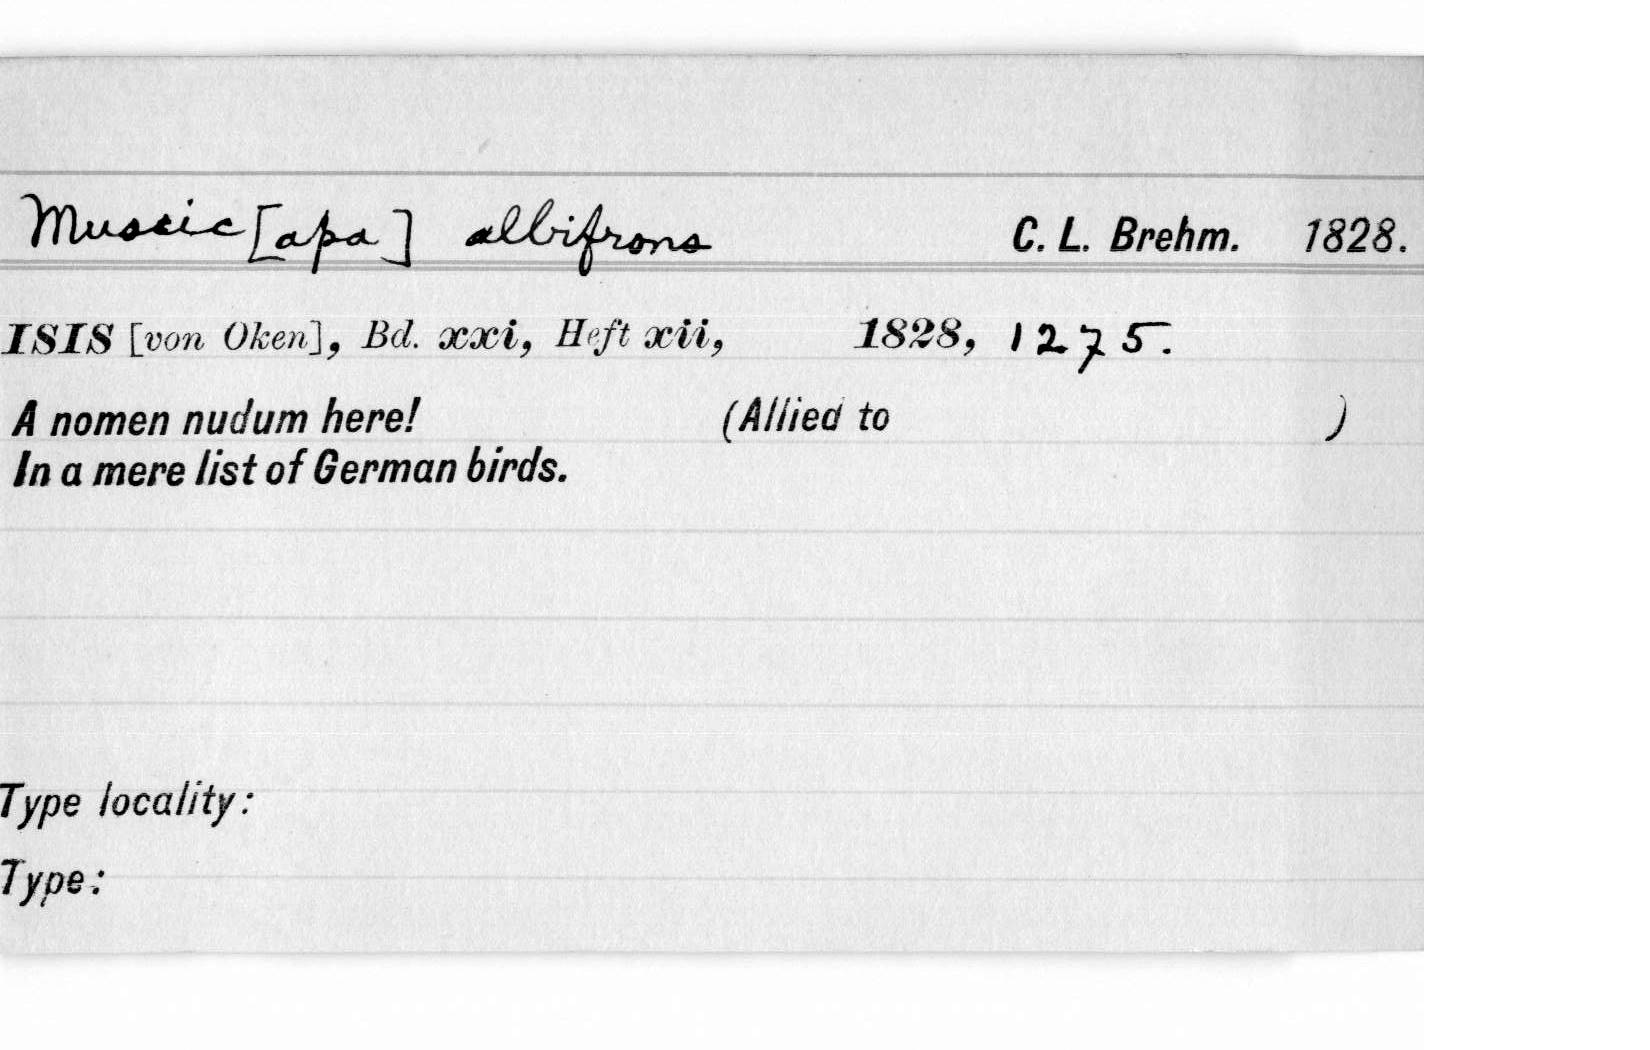 Muscic[apa] albifrons C. L. Brehm. 1828.
ISIS [von Oken], Bd. xxi, Heft xii, 1828, 1275.
A nomen nudum here! (Allied to )
In a mere list of German birds.
Type locality:
Type: